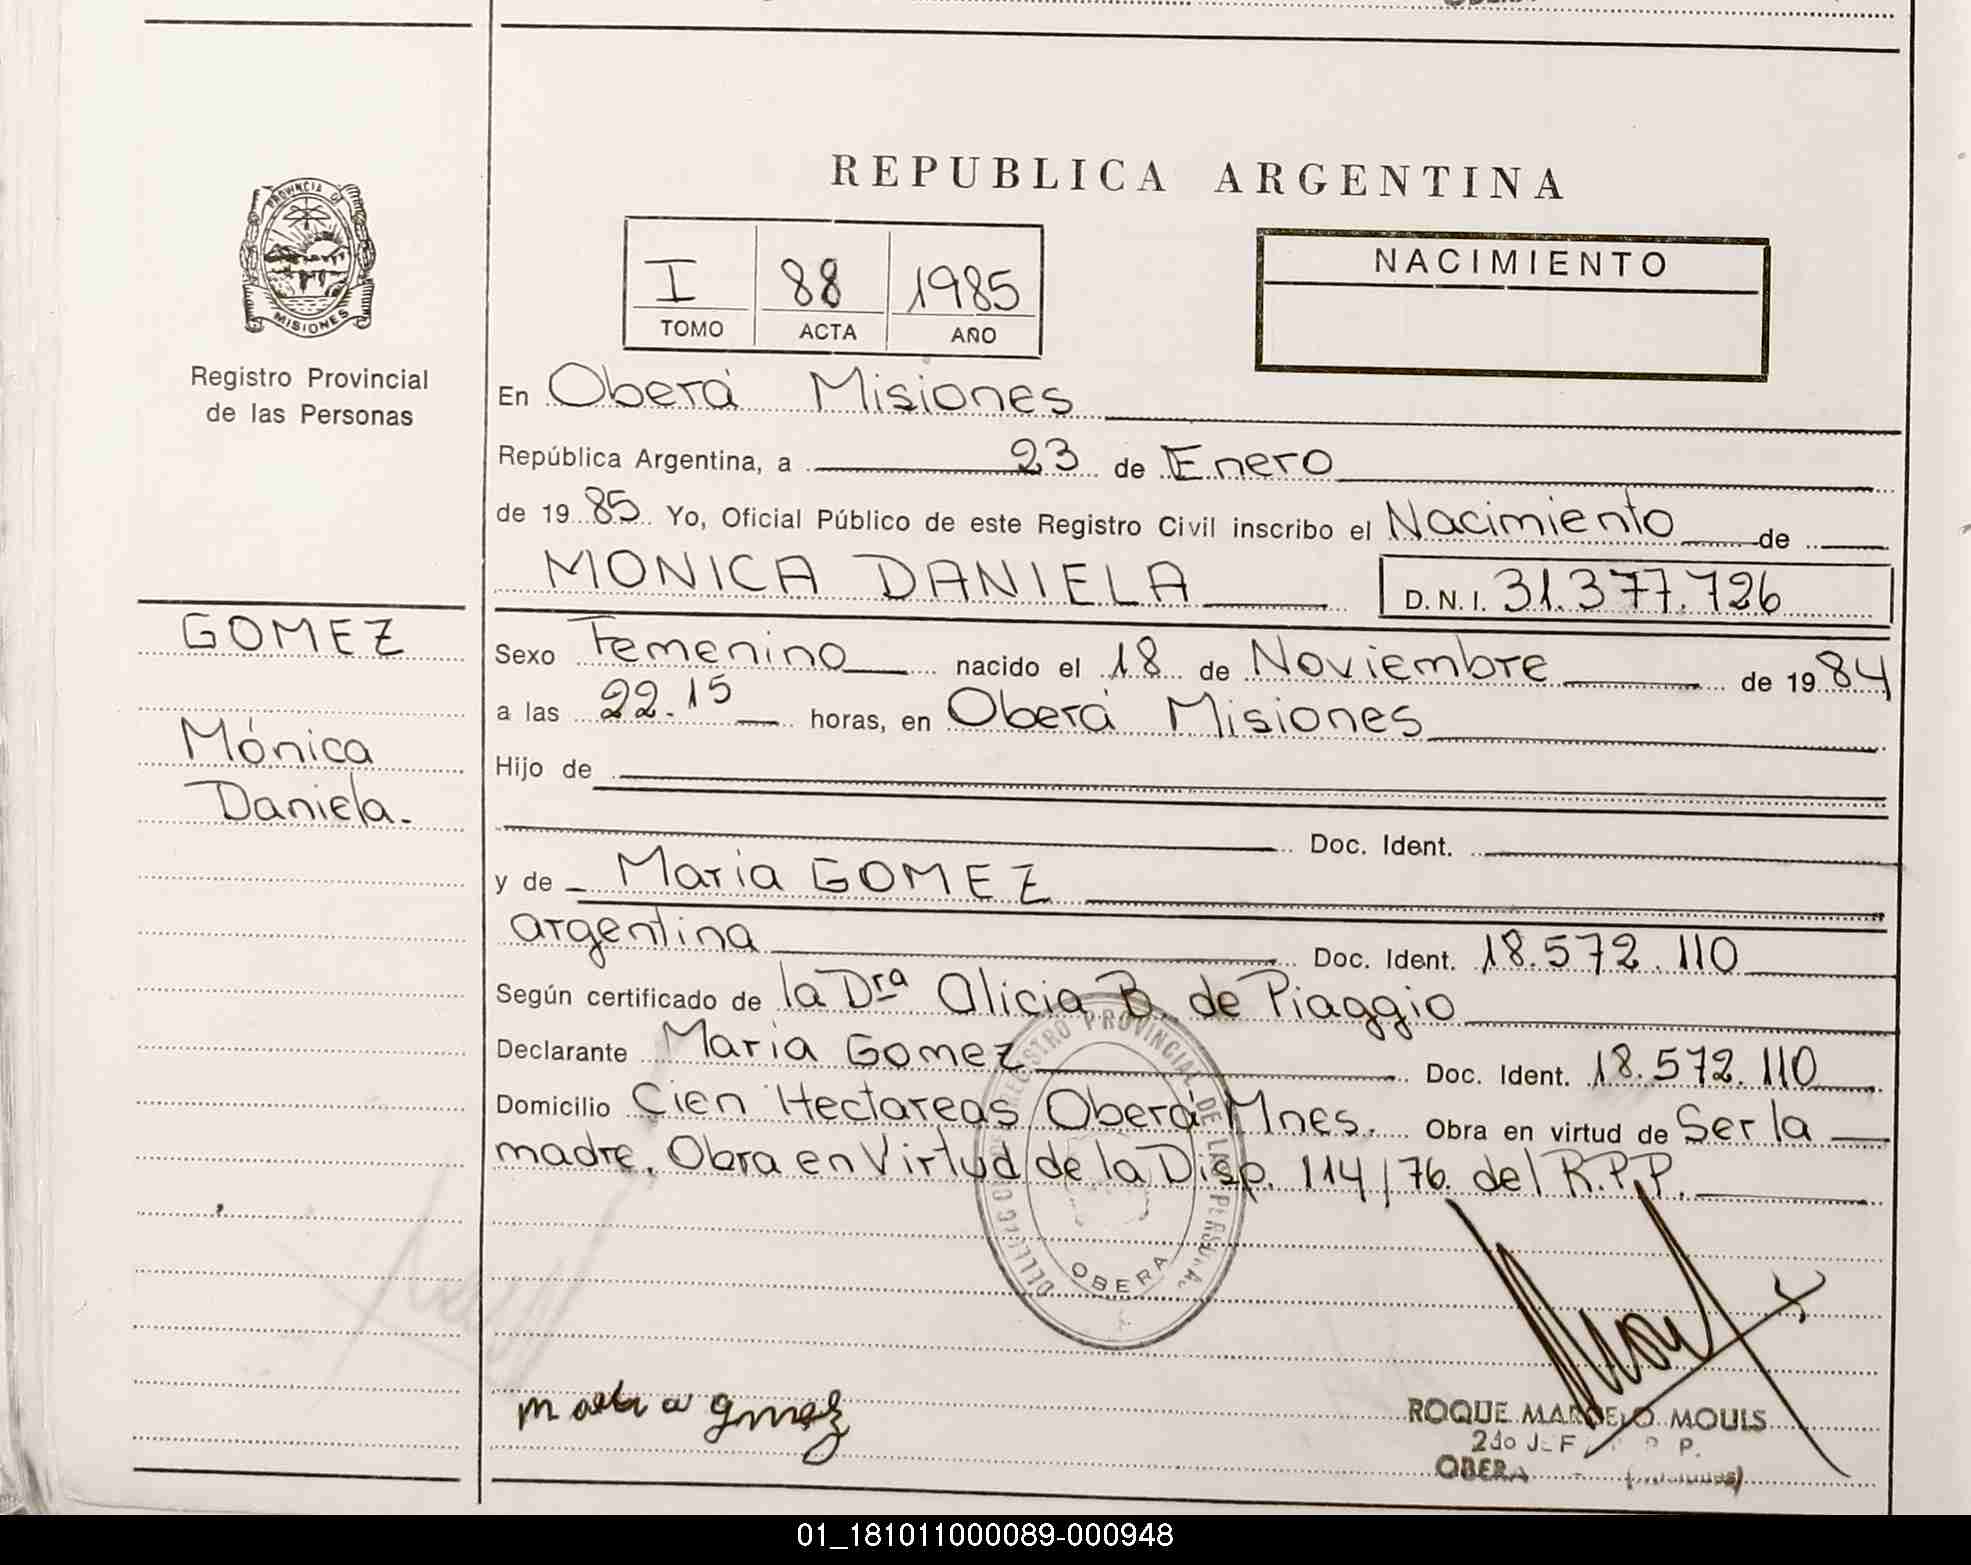 REPUBLICA ARGENTINA
PROVINCIA DE
MISIONES
Registro Provincial
de las Personas
I 88 1985
TOMO ACTA AÑO
NACIMIENTO
En Oberá Misiones
República Argentina, a 23 de Enero
de 1985 Yo, Oficial Público de este Registro Civil inscribo el Nacimiento de
MONICA DANIELA D.N.I. 31.377.726
GOMEZ
Mónica
Daniela.
Sexo Femenino nacido el 18 de Noviembre de 1984
a las 22.15 horas, en Oberá Misiones
Hijo de
Doc. Ident.
y de Maria GOMEZ
argentina Doc. Ident. 18.572.110
Según certificado de la Dra Alicia B. de Piaggio
Declarante Maria Gomez Doc. Ident. 18.572.110
Domicilio Cien Hectareas Oberá Mnes. Obra en virtud de Ser la
madre. Obra en Virtud de la Disp. 114/76 del R.P.P.
REGISTRO PROVINCIAL DE LAS PERSONAS
OBERA
maria gmez
ROQUE MARCELO MOULS
2do
OBERA
01_181011000089-000948